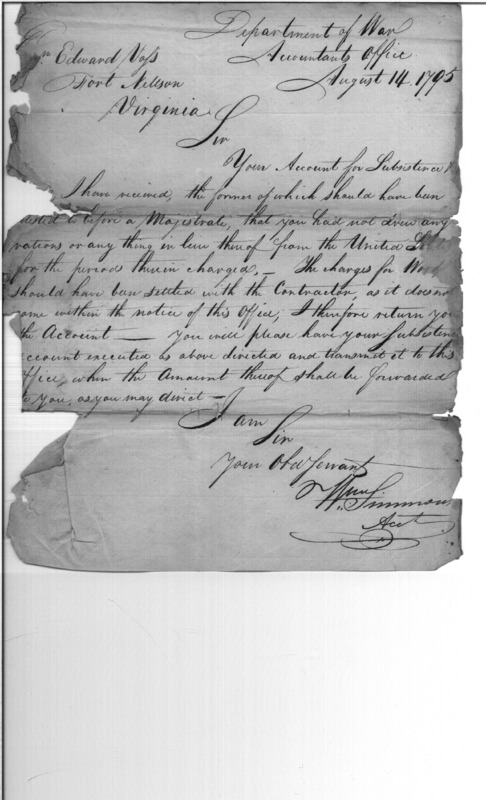 Department of War
Accountants Office
August 14. 1795
Edward Voss
Fort Nellson
Virginia
Sir
Your Account for Subsistence &
I have received, the former of which should have been
to before a Majestrate, that you had not drew any
rations or any thing in lieu thereof from the United
for the period therein charged. — The charges for Wood
should have been settled with the Contractor, as it does not
come within the notice of this Office, I therefore return you
the Account — You will please have your Subsistence
account executed as above directed and transmit it to this
Office, when the Amount thereof shall be forwarded
to you, as you may direct —
I am
Sir
Your Obd Servant
Wm. Simmons
Acct.